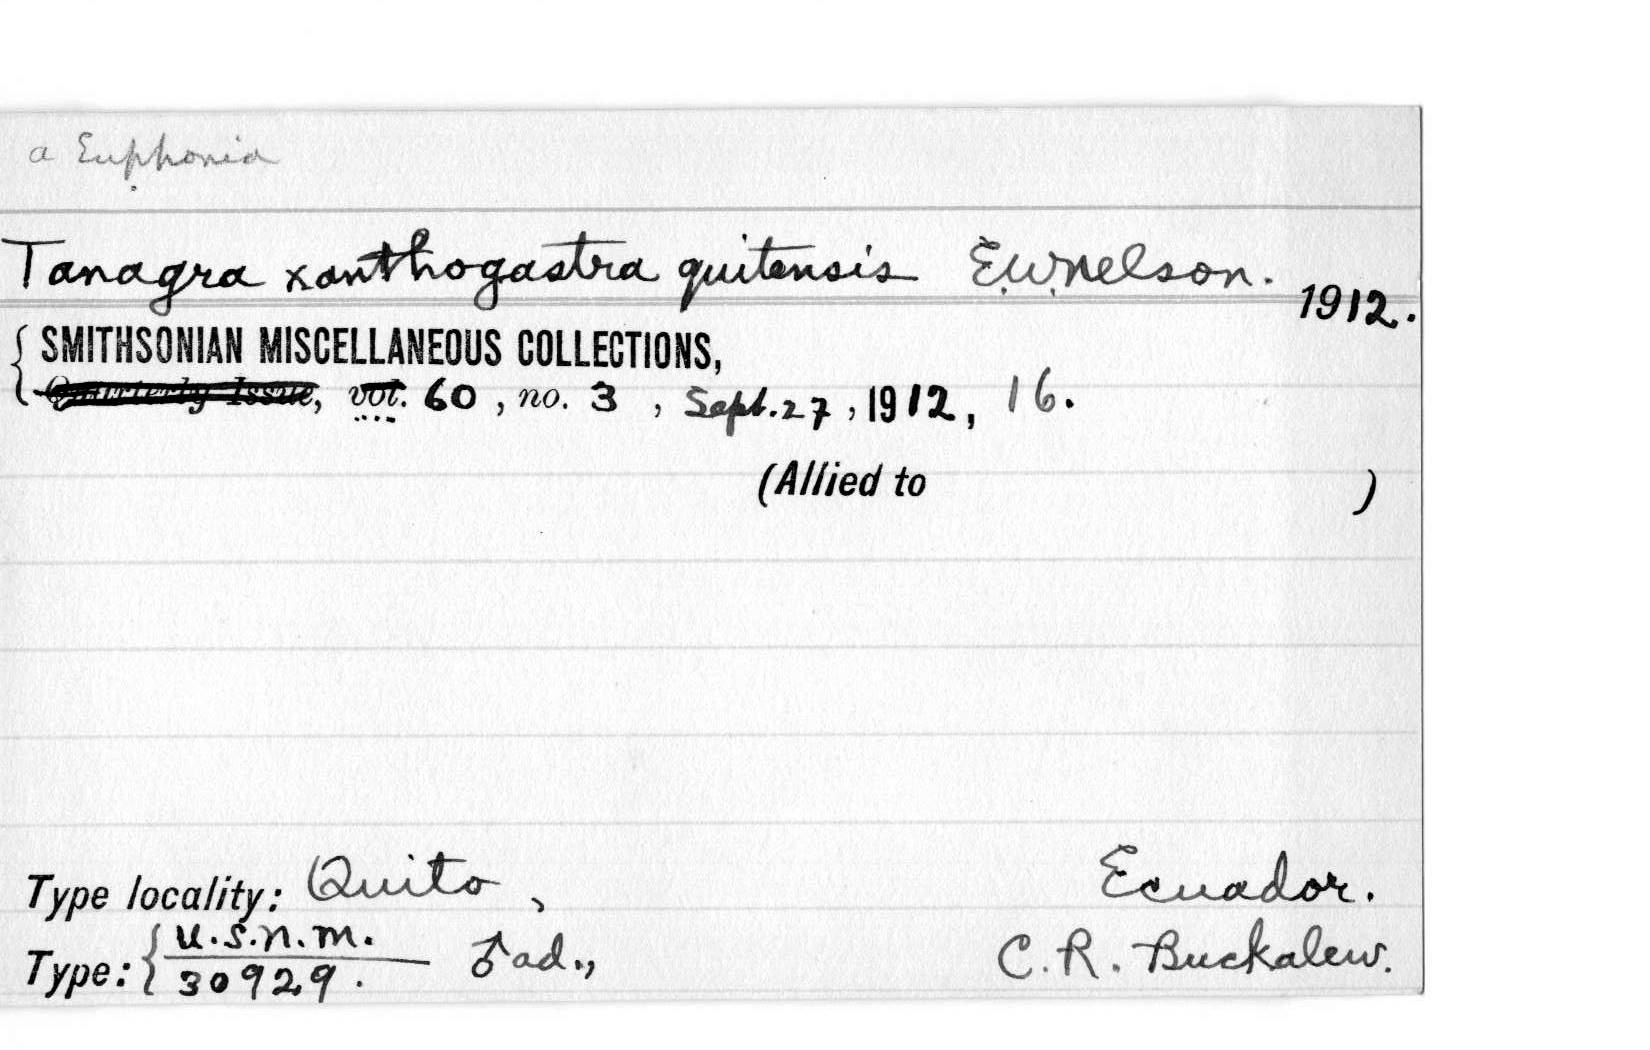 a Euphonia
Tanagra xanthogastra quitensis E.W.Nelson. 1912.
{ SMITHSONIAN MISCELLANEOUS COLLECTIONS,
Quarterly Issue, vol. 60, no. 3, Sept. 27, 1912, 16.
(Allied to )
Type locality: Quito, Ecuador.
Type: { U.S.N.M. / 30929. ♂ ad., C. R. Buckalew.